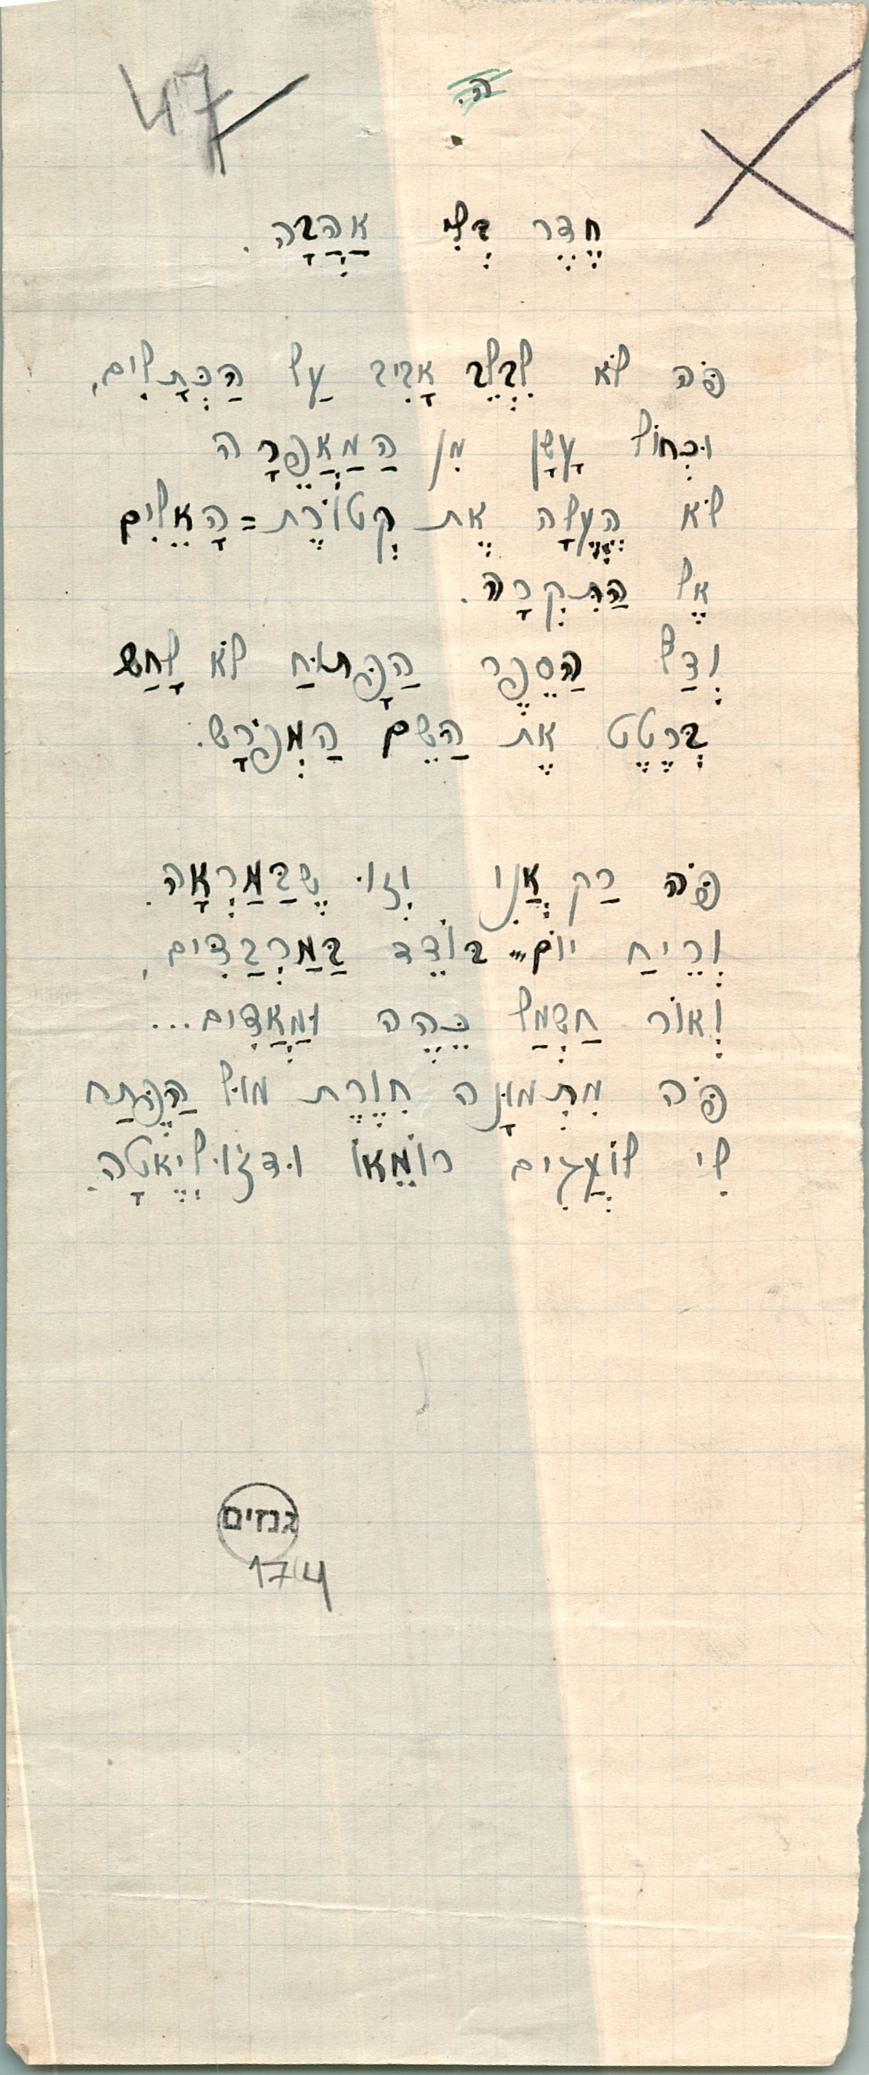 47
ה.
חֶדֶר בְּלִי אַהֲבָה.
פֹּה לֹא לִבְלֵב אָבִיב עַל הַכְּתָלִים,
וּכְחוֹל עָשָׁן מִן הַמַּאֲפֵרָה
לֹא הֶעֱלָה אֶת קְטוֹרֶת=הָאֵלִים
אֶל הַתִּקְרָה.
וְדַל הַסֵּפֶר הַפָּתוּחַ לֹא לָחַשׁ
בְּרֶטֶט אֶת הַשֵּׁם הַמְּפֹרָשׁ.
פֹּה רַק אֲנִי וְזוֹ שֶׁבַּמַּרְאָה.
וְרֵיחַ יוֹם בּוֹדֵד בַּמַּרְבַדִּים,
וְאוֹר חַשְׁמַל כֵּהֶה וּמַאֲדִים...
פֹּה מִתְּמוּנָה חִוֶּרֶת מוּל הַפֶּתַח
לִי לוֹעֲגִים רוֹמֵאוֹ וּדְזׁוּלְיֶאטָה.
גנזים
174